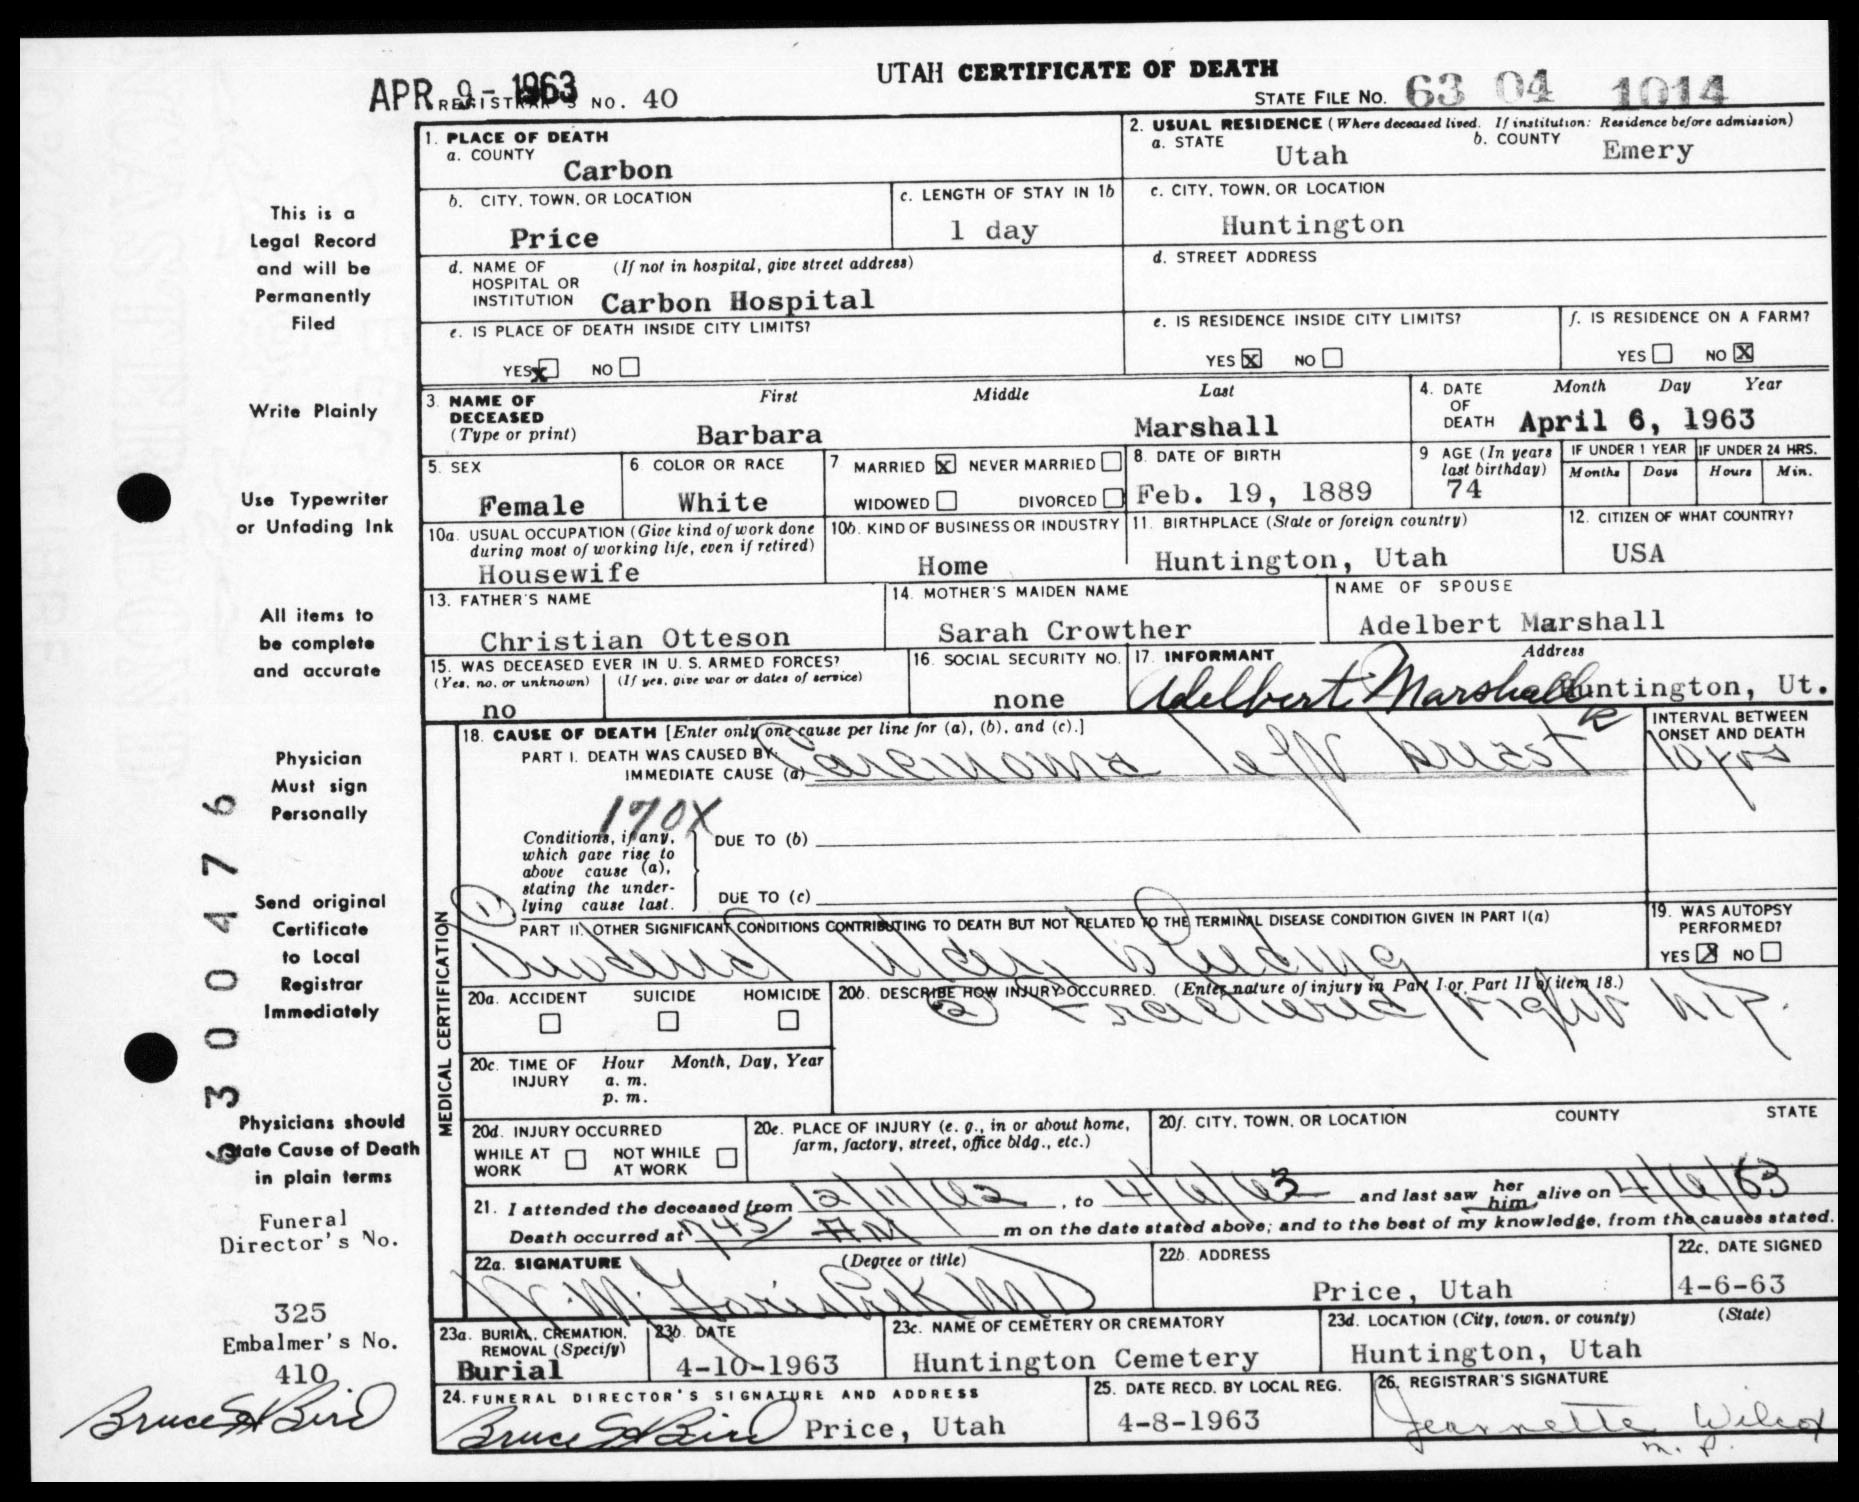 UTAH CERTIFICATE OF DEATH
APR 9 - 1963
REGISTRAR'S NO. 40
STATE FILE NO. 63 04 1014
This is a
Legal Record
and will be
Permanently
Filed
Write Plainly
Use Typewriter
or Unfading Ink
All items to
be complete
and accurate
Physician
Must sign
Personally
Send original
Certificate
to Local
Registrar
Immediately
Physicians should
State Cause of Death
in plain terms
6300476
Funeral
Director's No.
325
Embalmer's No.
410
Bruce H Bird
1. PLACE OF DEATH
a. COUNTY
Carbon
b. CITY, TOWN, OR LOCATION
Price
c. LENGTH OF STAY IN 1b
1 day
d. NAME OF (If not in hospital, give street address)
HOSPITAL OR
INSTITUTION Carbon Hospital
e. IS PLACE OF DEATH INSIDE CITY LIMITS?
YES X NO
2. USUAL RESIDENCE (Where deceased lived. If institution: Residence before admission)
a. STATE Utah b. COUNTY Emery
c. CITY, TOWN, OR LOCATION
Huntington
d. STREET ADDRESS
e. IS RESIDENCE INSIDE CITY LIMITS?
YES X NO
f. IS RESIDENCE ON A FARM?
YES NO X
3. NAME OF DECEASED (Type or print)
First Middle Last
Barbara Marshall
4. DATE OF DEATH Month Day Year
April 6, 1963
5. SEX
Female
6 COLOR OR RACE
White
7 MARRIED X NEVER MARRIED
WIDOWED DIVORCED
8. DATE OF BIRTH
Feb. 19, 1889
9 AGE (In years last birthday)
74
IF UNDER 1 YEAR
Months Days
IF UNDER 24 HRS.
Hours Min.
10a. USUAL OCCUPATION (Give kind of work done
during most of working life, even if retired)
Housewife
10b. KIND OF BUSINESS OR INDUSTRY
Home
11. BIRTHPLACE (State or foreign country)
Huntington, Utah
12. CITIZEN OF WHAT COUNTRY?
USA
13. FATHER'S NAME
Christian Otteson
14. MOTHER'S MAIDEN NAME
Sarah Crowther
NAME OF SPOUSE
Adelbert Marshall
15. WAS DECEASED EVER IN U. S. ARMED FORCES?
(Yes, no, or unknown) (If yes, give war or dates of service)
no
16. SOCIAL SECURITY NO.
none
17. INFORMANT Address
Adelbert Marshall Huntington, Ut.
MEDICAL CERTIFICATION
18. CAUSE OF DEATH [Enter only one cause per line for (a), (b), and (c).]
PART I. DEATH WAS CAUSED BY:
IMMEDIATE CAUSE (a) Carcinoma left breast
INTERVAL BETWEEN
ONSET AND DEATH
10 yrs
170X
Conditions, if any,
which gave rise to
above cause (a),
stating the under-
lying cause last.
DUE TO (b)
DUE TO (c)
PART II. OTHER SIGNIFICANT CONDITIONS CONTRIBUTING TO DEATH BUT NOT RELATED TO THE TERMINAL DISEASE CONDITION GIVEN IN PART I(a)
(1) Duodenal Ulcer, bleeding
(2) Fractured right hip.
19. WAS AUTOPSY
PERFORMED?
YES X NO
20a. ACCIDENT SUICIDE HOMICIDE
20b. DESCRIBE HOW INJURY OCCURRED. (Enter nature of injury in Part I or Part II of item 18.)
20c. TIME OF INJURY Hour Month, Day, Year
a. m.
p. m.
20d. INJURY OCCURRED
WHILE AT WORK NOT WHILE AT WORK
20e. PLACE OF INJURY (e. g., in or about home,
farm, factory, street, office bldg., etc.)
20f. CITY, TOWN, OR LOCATION COUNTY STATE
21. I attended the deceased from 12/11/62, to 4/6/63 and last saw her him alive on 4/6/63
Death occurred at 745 AM m on the date stated above; and to the best of my knowledge, from the causes stated.
22a. SIGNATURE (Degree or title)
MD
22b. ADDRESS
Price, Utah
22c. DATE SIGNED
4-6-63
23a. BURIAL, CREMATION,
REMOVAL (Specify)
Burial
23b. DATE
4-10-1963
23c. NAME OF CEMETERY OR CREMATORY
Huntington Cemetery
23d. LOCATION (City, town, or county) (State)
Huntington, Utah
24. FUNERAL DIRECTOR'S SIGNATURE AND ADDRESS
Bruce H Bird Price, Utah
25. DATE RECD. BY LOCAL REG.
4-8-1963
26. REGISTRAR'S SIGNATURE
Jeannette Wilcox
m. p.